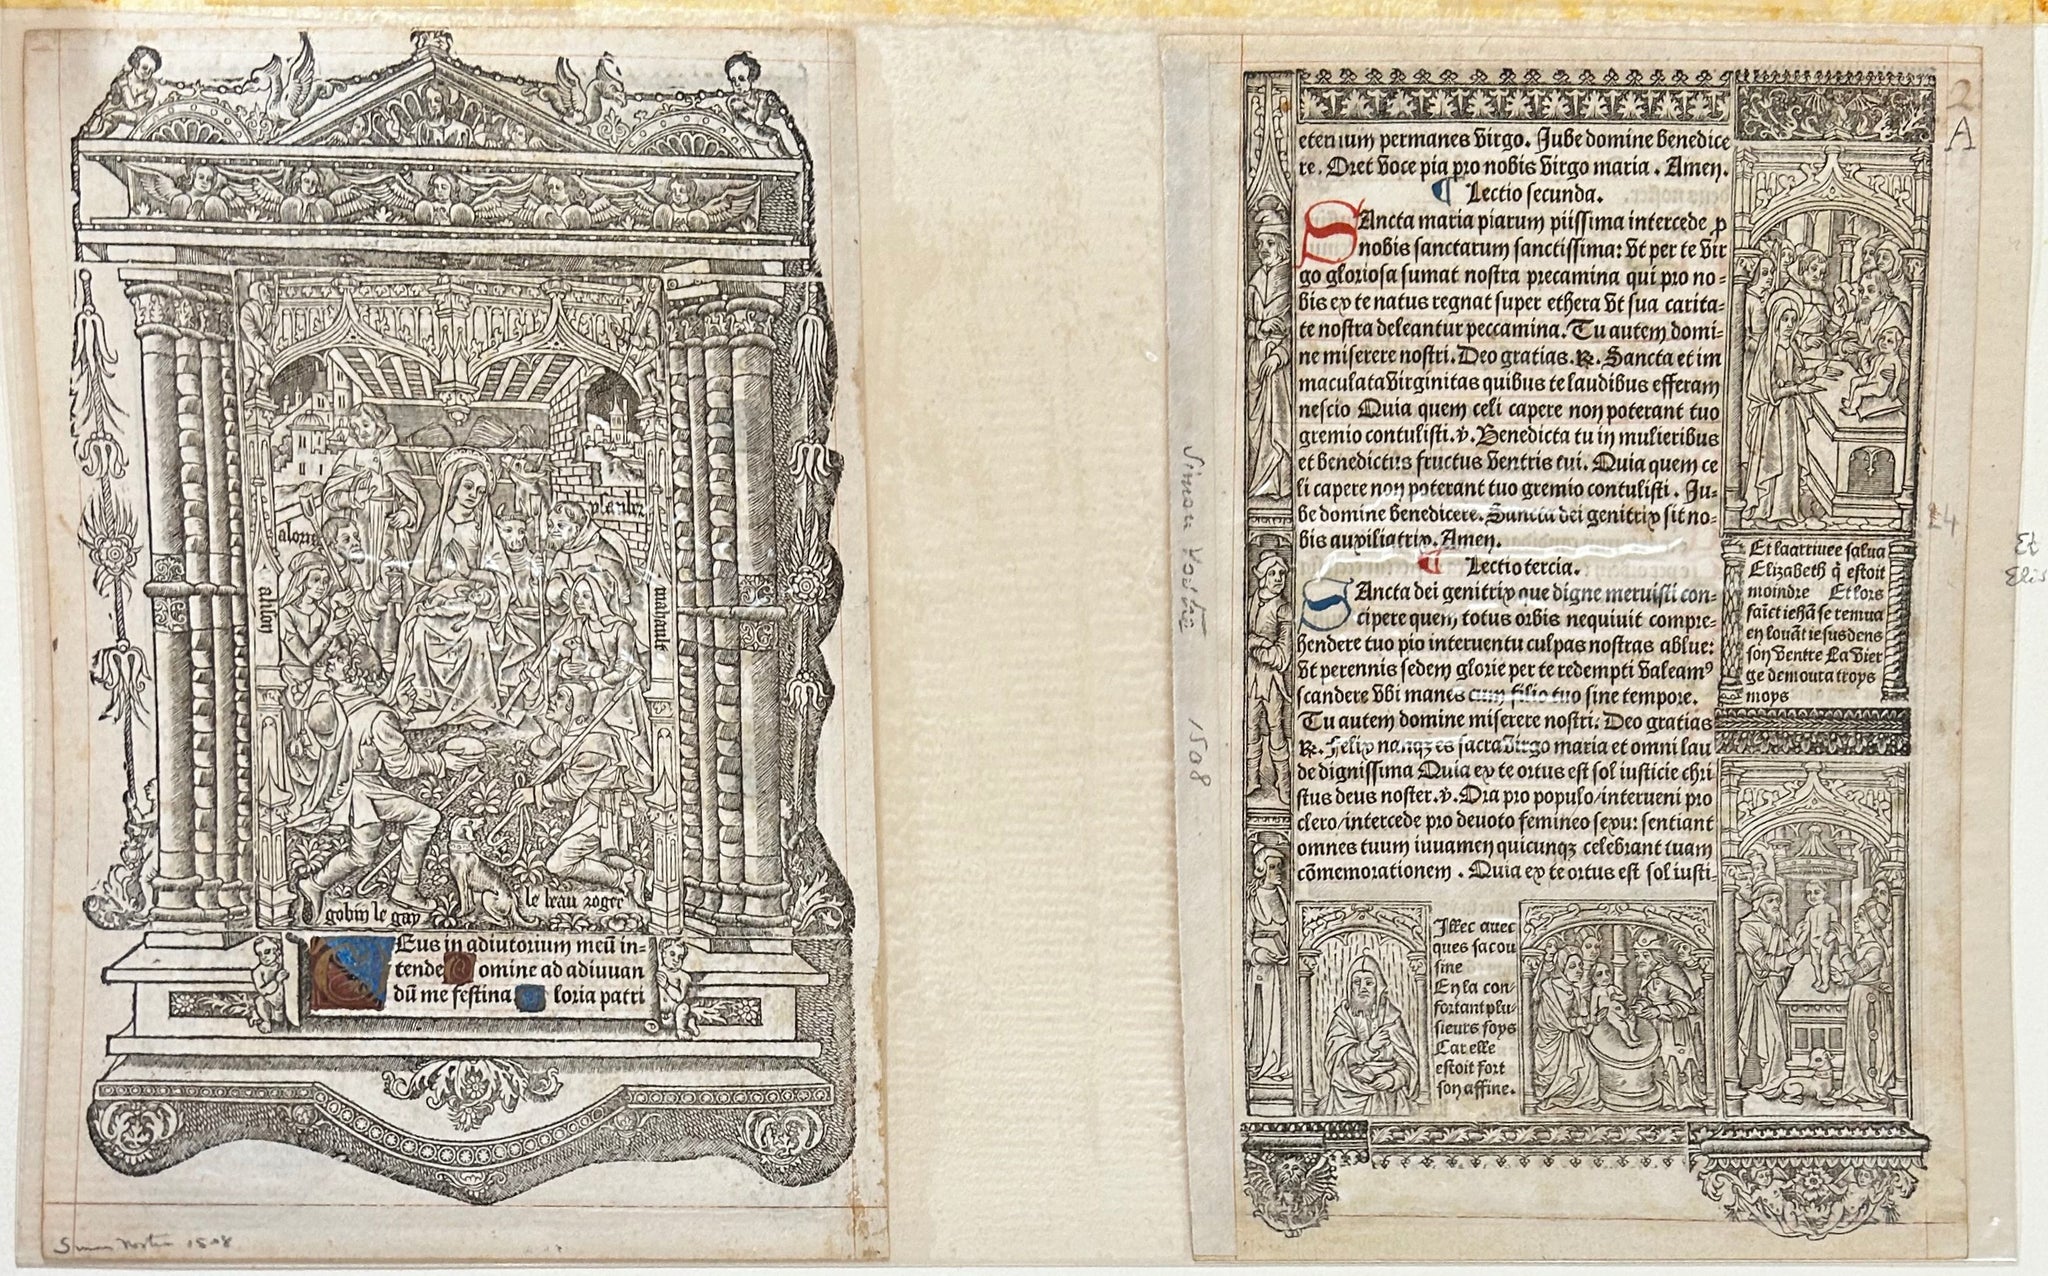 aloris
aluson
mahault
gobin le gay
le beau roger
Eus in adiutorium meū in-
tende omine ad adiuuan
dū me festina loria patri
Simon Vostre 1508
Simon Vostre 1508
2
A
eternum permanes virgo. Jube domine benedice
re. Oret voce pia pro nobis virgo maria. Amen.
¶ Lectio secunda.
SAncta maria piarum piissima intercede p
nobis sanctarum sanctissima: vt per te vir
go gloriosa sumat nostra precamina qui pro no-
bis ex te natus regnat super ethera vt sua carita-
te nostra deleantur peccamina. Tu autem domi-
ne miserere nostri. Deo gratias. ℟. Sancta et im
maculata virginitas quibus te laudibus efferam
nescio Quia quem celi capere non poterant tuo
gremio contulisti. v. Benedicta tu in mulieribus
et benedictus fructus ventris tui. Quia quem ce
li capere non poterant tuo gremio contulisti. Ju-
be domine benedicere. Sancta dei genitrix sit no-
bis auxiliatrix. Amen.
¶ Lectio tercia.
SAncta dei genitrix que digne meruisti con-
cipere quem totus orbis nequiuit compre-
hendere tuo pio interuentu culpas nostras ablue:
vt perennis sedem glorie per te redempti valeamꝰ
scandere vbi manes cum filio tuo sine tempore.
Tu autem domine miserere nostri. Deo gratias
℟. Felix nanqꝫ es sacra virgo maria et omni lau
de dignissima Quia ex te ortus est sol iusticie chri
stus deus noster. v. Ora pro populo/interueni pro
clero/intercede pro deuoto femineo sexu: sentiant
omnes tuum iuuamen quicunqꝫ celebrant tuam
cōmemorationem. Quia ex te ortus est sol iusti-
Et laarriuee salua
Elizabeth q̄ estoit
moindre Et lors
sait iehā se remua
en louāt iesus dens
son ventre La vier
ge demoura troys
moys
Et
Elis
Illec auec
ques sa cou
sine
En la con-
fortant plu-
sieurs foys
Car elle
estoit fort
son affine.